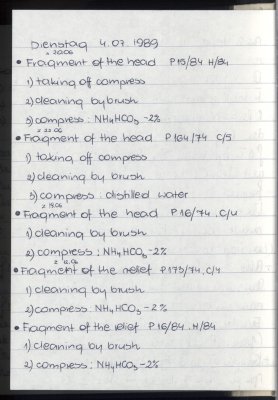 Dienstag 4.07.1989
• Fragment of the head P 15/84 H/84
1) taking off compress
2) cleaning by brush
3) compress: NH4HCO3 -2%
• Fragment of the head P 164/74 C/5
1) taking off compress
2) cleaning by brush
3) compress: distilled water
• Fragment of the head P 16/74. C/4
1) cleaning by brush
2) compress: NH4HCO3 -2%
• Fragment of the relief P 173/74. C/4
1) cleaning by brush
2) compress: NH4HCO3 -2%
• Fragment of the relief P 16/84. H/84
1) cleaning by brush
2) compress: NH4HCO3 -2%